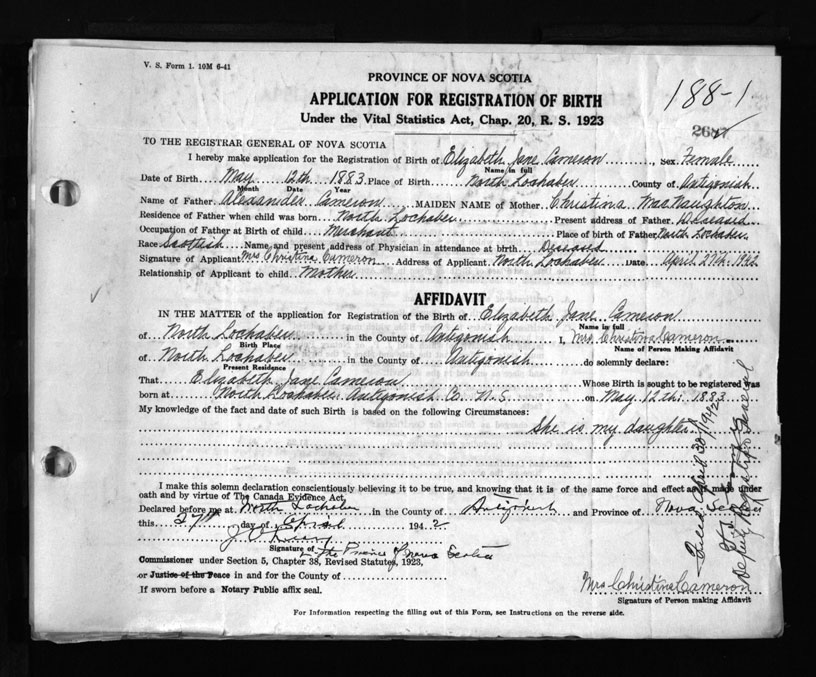 V. S. Form 1. 10M 6-41
PROVINCE OF NOVA SCOTIA
188-1
APPLICATION FOR REGISTRATION OF BIRTH
Under the Vital Statistics Act, Chap. 20, R. S. 1923
TO THE REGISTRAR GENERAL OF NOVA SCOTIA
I hereby make application for the Registration of Birth of Elizabeth Jane Cameron, Sex Female
Name in full
Date of Birth May 12th 1883 Place of Birth North Lochaber County of Antigonish
Month Date Year
Name of Father Alexander Cameron MAIDEN NAME of Mother Christina MacNaughton
Residence of Father when child was born North Lochaber Present address of Father Deceased
Occupation of Father at Birth of child Merchant Place of birth of Father North Lochaber
Race Scottish Name and present address of Physician in attendance at birth Deceased
Signature of Applicant Mrs Christina Cameron Address of Applicant North Lochaber Date April 27th 1942
Relationship of Applicant to child Mother
AFFIDAVIT
IN THE MATTER of the application for Registration of the Birth of Elizabeth Jane Cameron
Name in full
of North Lochaber in the County of Antigonish I, Mrs Christina Cameron
Birth Place Name of Person Making Affidavit
of North Lochaber in the County of Antigonish do solemnly declare:
Present Residence
That Elizabeth Jane Cameron Whose Birth is sought to be registered was
born at North Lochaber Antigonish Co. N.S. on May 12th 1883
My knowledge of the fact and date of such Birth is based on the following Circumstances:
She is my daughter.
I make this solemn declaration conscientiously believing it to be true, and knowing that it is of the same force and effect as if made under
oath and by virtue of The Canada Evidence Act.
Declared before me at North Lochaber in the County of Antigonish and Province of Nova Scotia
this 27th day of April 1942
Signature of
Commissioner under Section 5, Chapter 38, Revised Statutes, 1923,
or Justice of the Peace in and for the County of
If sworn before a Notary Public affix seal.
Mrs Christina Cameron
Signature of Person making Affidavit
For Information respecting the filling out of this Form, see Instructions on the reverse side.
Filed April 30/1942
Deputy Registrar General